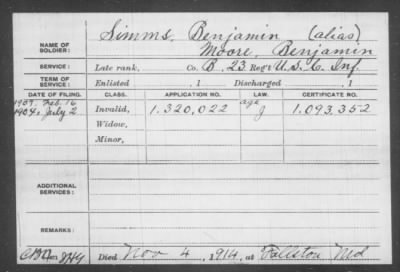 Simms, Benjamin (alias)
NAME OF SOLDIER: Moore, Benjamin
SERVICE: Late rank, Co. B, 23 Reg't U.S.C. Inf.
TERM OF SERVICE: Enlisted , 1 Discharged , 1
DATE OF FILING. CLASS. APPLICATION NO. LAW. CERTIFICATE NO.
Feb. 16
1904, July 2 Invalid, 1.320,022 age J 1.093.352
Widow,
Minor,
ADDITIONAL SERVICES:
REMARKS:
Died Nov 4, 1914, at Fallston Md